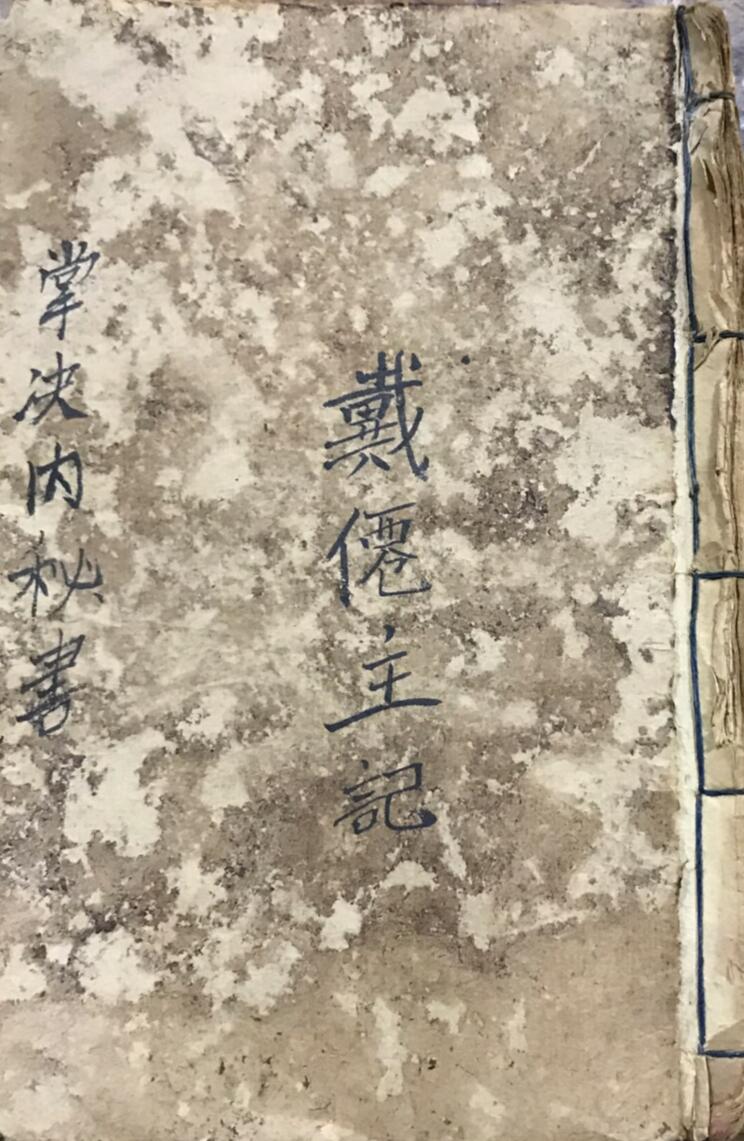 戴僊主記
掌决内秘書